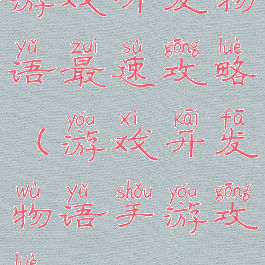 游戏开发物
yǔ zuì sù gōng lüè
语最速攻略
yóu xì kāi fā
（游戏开发
wù yǔ shǒu yóu gōng
物语手游攻
lüè